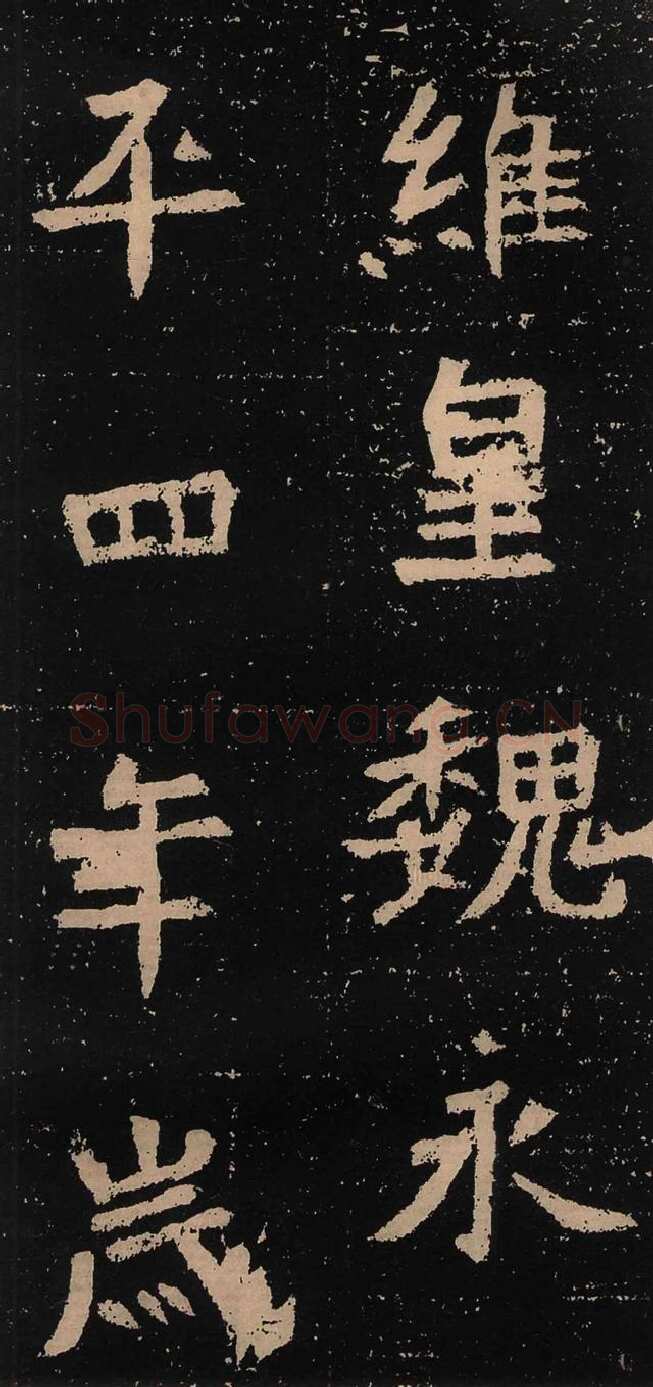 維皇魏永
平四年歲
Shufawang.CN